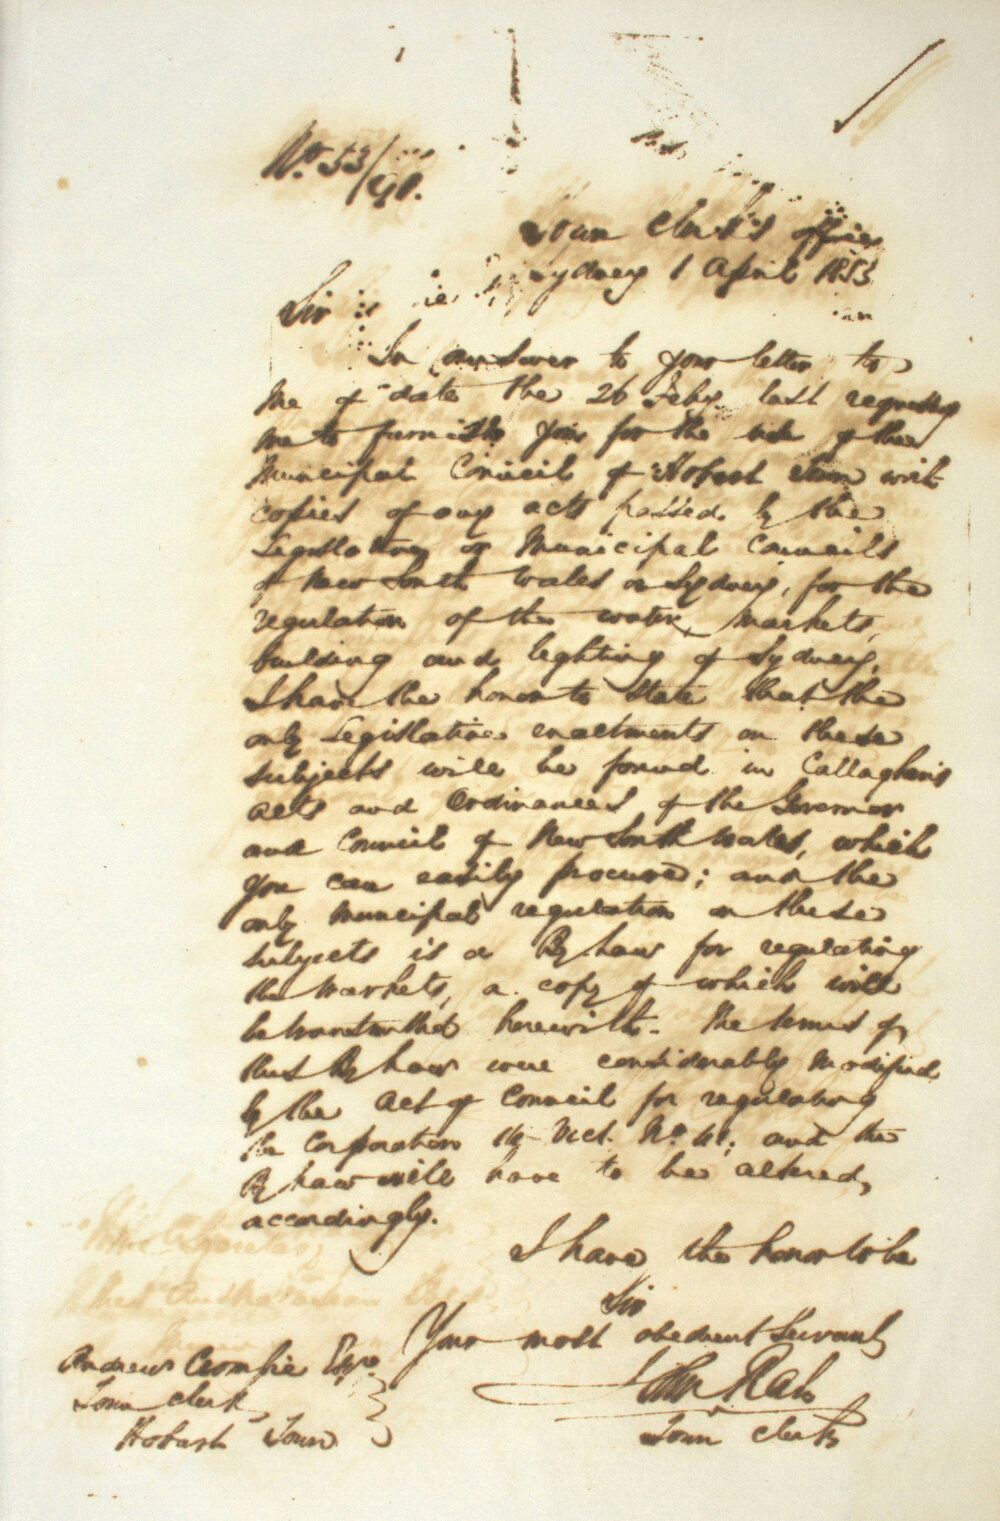 No. 53/98.
Town Clerk's Office
Sydney 1 April 1853
Sir
In answer to your letter to
me of date the 26 Feby. last requesting
me to furnish you for the use of the
Municipal Council of Hobart Town with
copies of any acts passed by the
Legislative or Municipal Councils
of New South Wales or Sydney, for the
regulation of the water, markets,
building and lighting of Sydney,
I have the honor to state that the
only Legislative enactments on these
subjects will be found in Callaghan's
acts and Ordinances of the Governor
and Council of New South Wales, which
you can easily procure; and the
only municipal regulation on these
subjects is a By Law for regulating
the Markets, a copy of which will
be transmitted herewith. The terms of
that By Law were considerably modified
by the Act of Council for regulating
the Corporation 14 Vict. No. 41; and the
By Law will have to be altered,
accordingly.
I have the honor to be
Sir
Your most obedient Servant
John Rae
Town Clerk
Andrew Crombie Esqe.
Town Clerk
Hobart Town